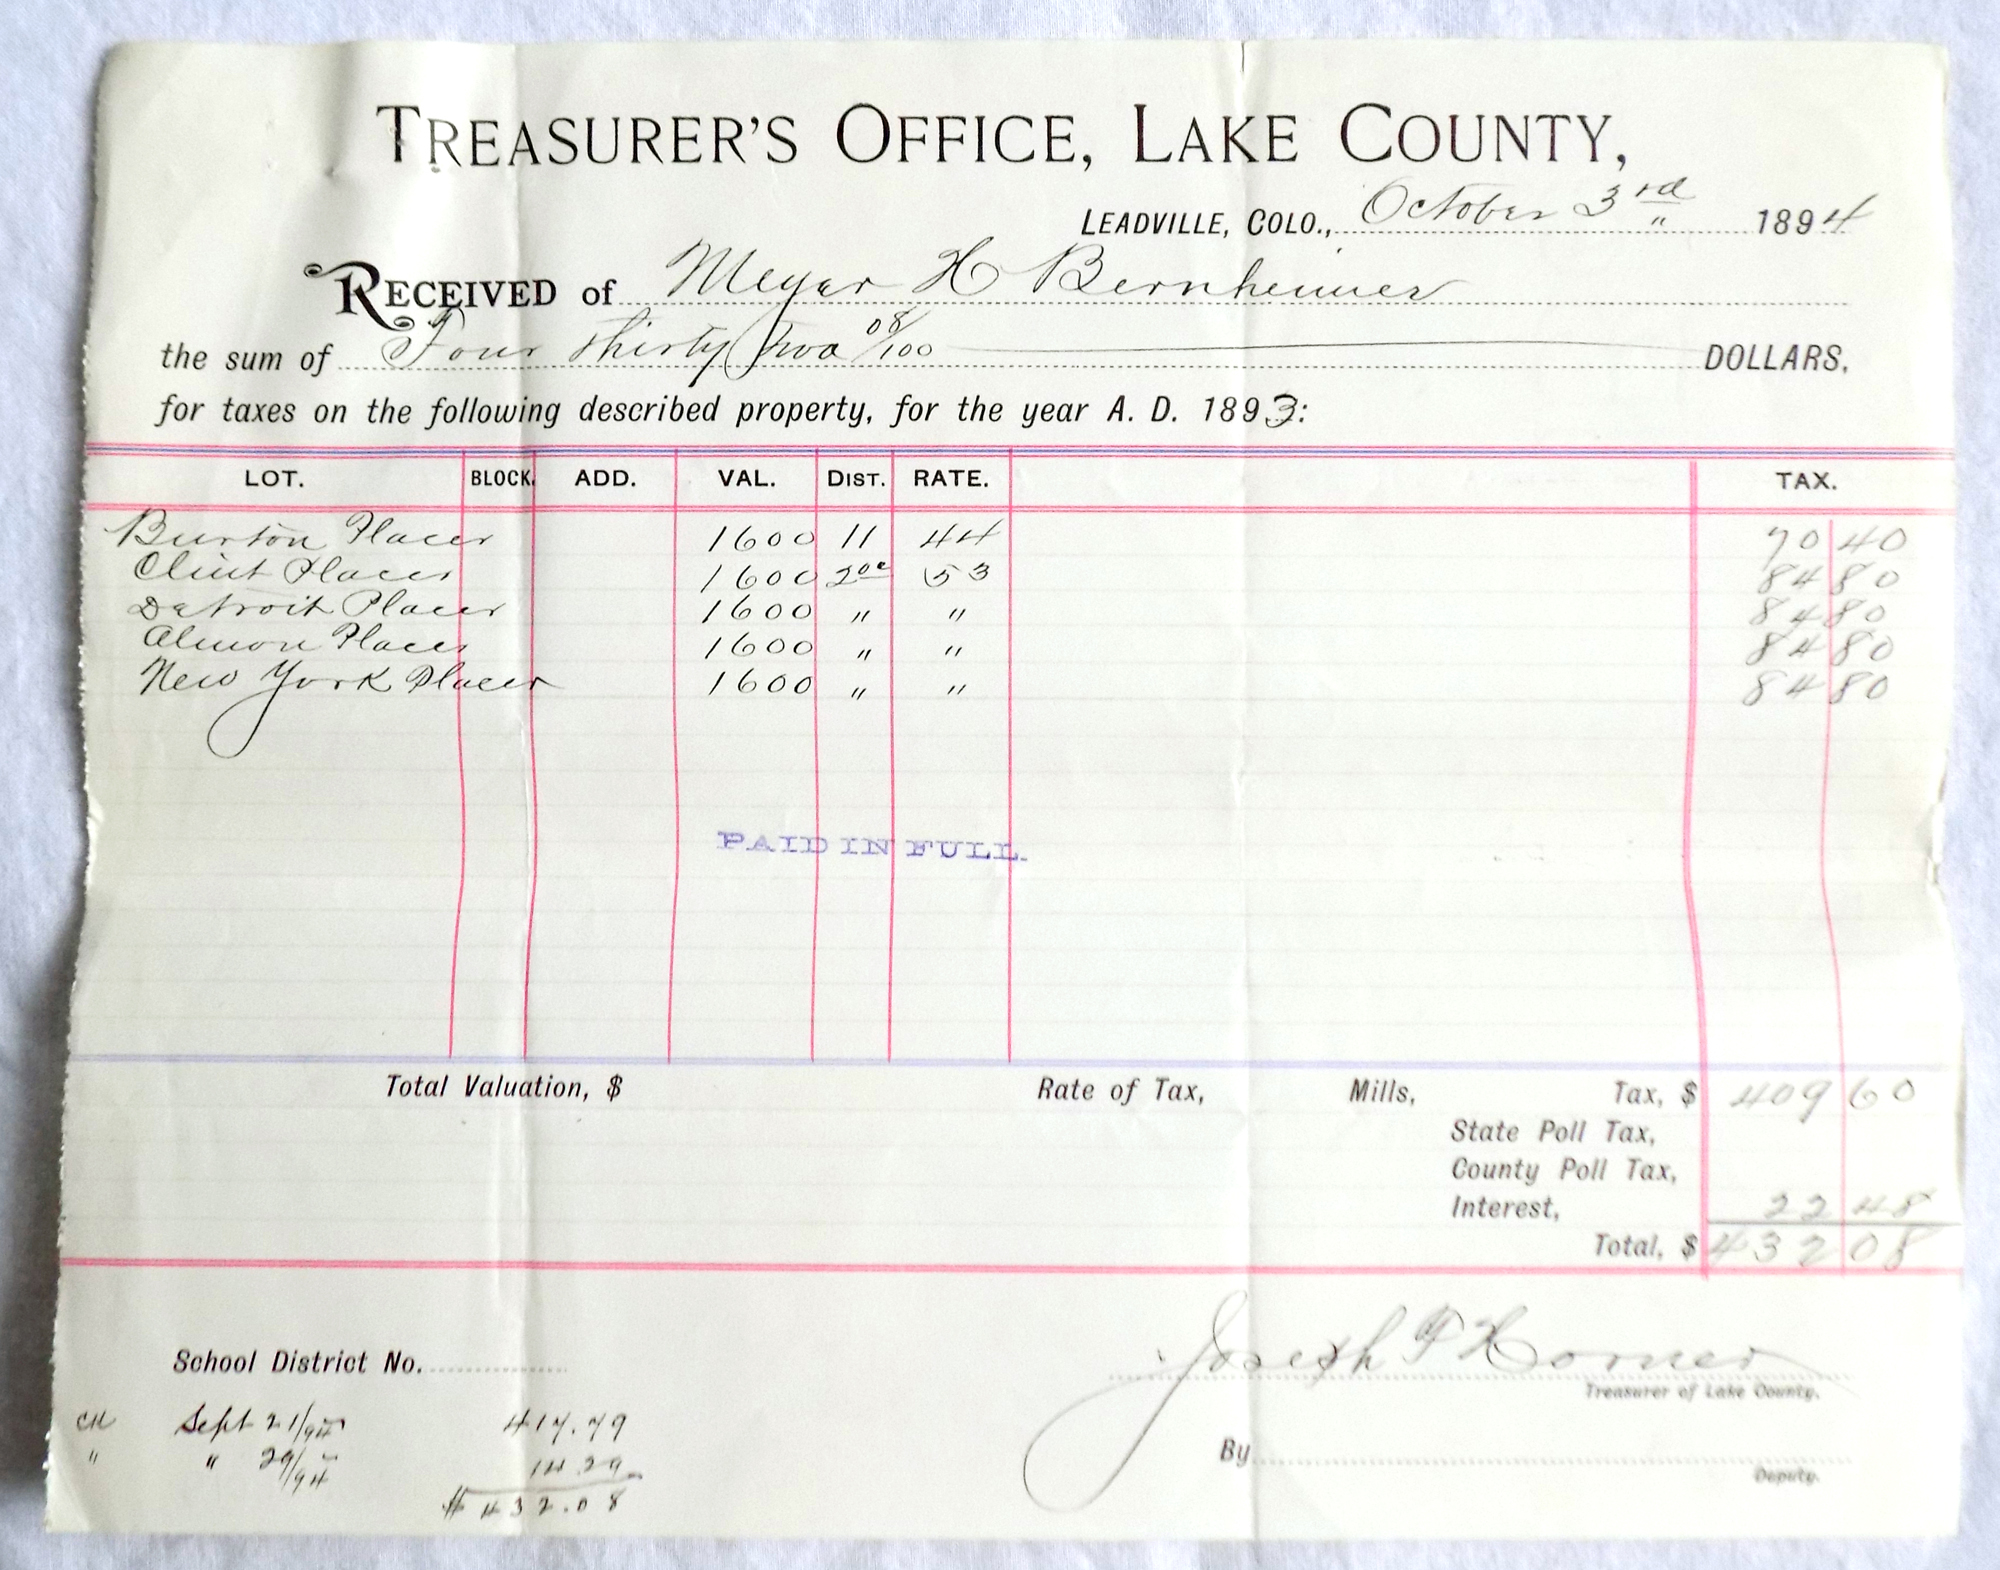 TREASURER'S OFFICE, LAKE COUNTY,
LEADVILLE, COLO., October 3rd 1894
RECEIVED of Meyer H Bernheimer
the sum of Four Thirty Two 08/100 DOLLARS,
for taxes on the following described property, for the year A. D. 1893:
LOT. BLOCK. ADD. VAL. DIST. RATE. TAX.
Burton Placer 1600 11 44 70 40
Clint Placer 1600 2 53 84 80
Detroit Placer 1600 " " 84 80
Almon Placer 1600 " " 84 80
New York Placer 1600 " " 84 80
PAID IN FULL.
Total Valuation, $ Rate of Tax, Mills, Tax, $ 409 60
State Poll Tax,
County Poll Tax,
Interest, 22 48
Total, $ 432 08
Joseph F Horner
School District No.
Treasurer of Lake County.
CH Sept 21/94 417.79
" " 29/94 14.29
By
$ 432.08
Deputy.